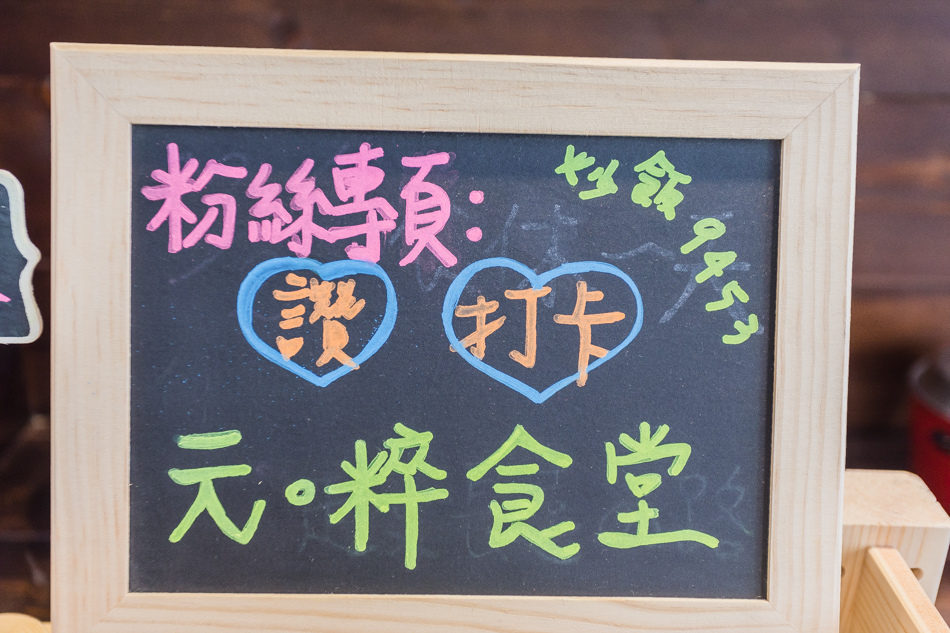 粉絲專頁:
炒飯9453
讚 打卡
元。粹食堂